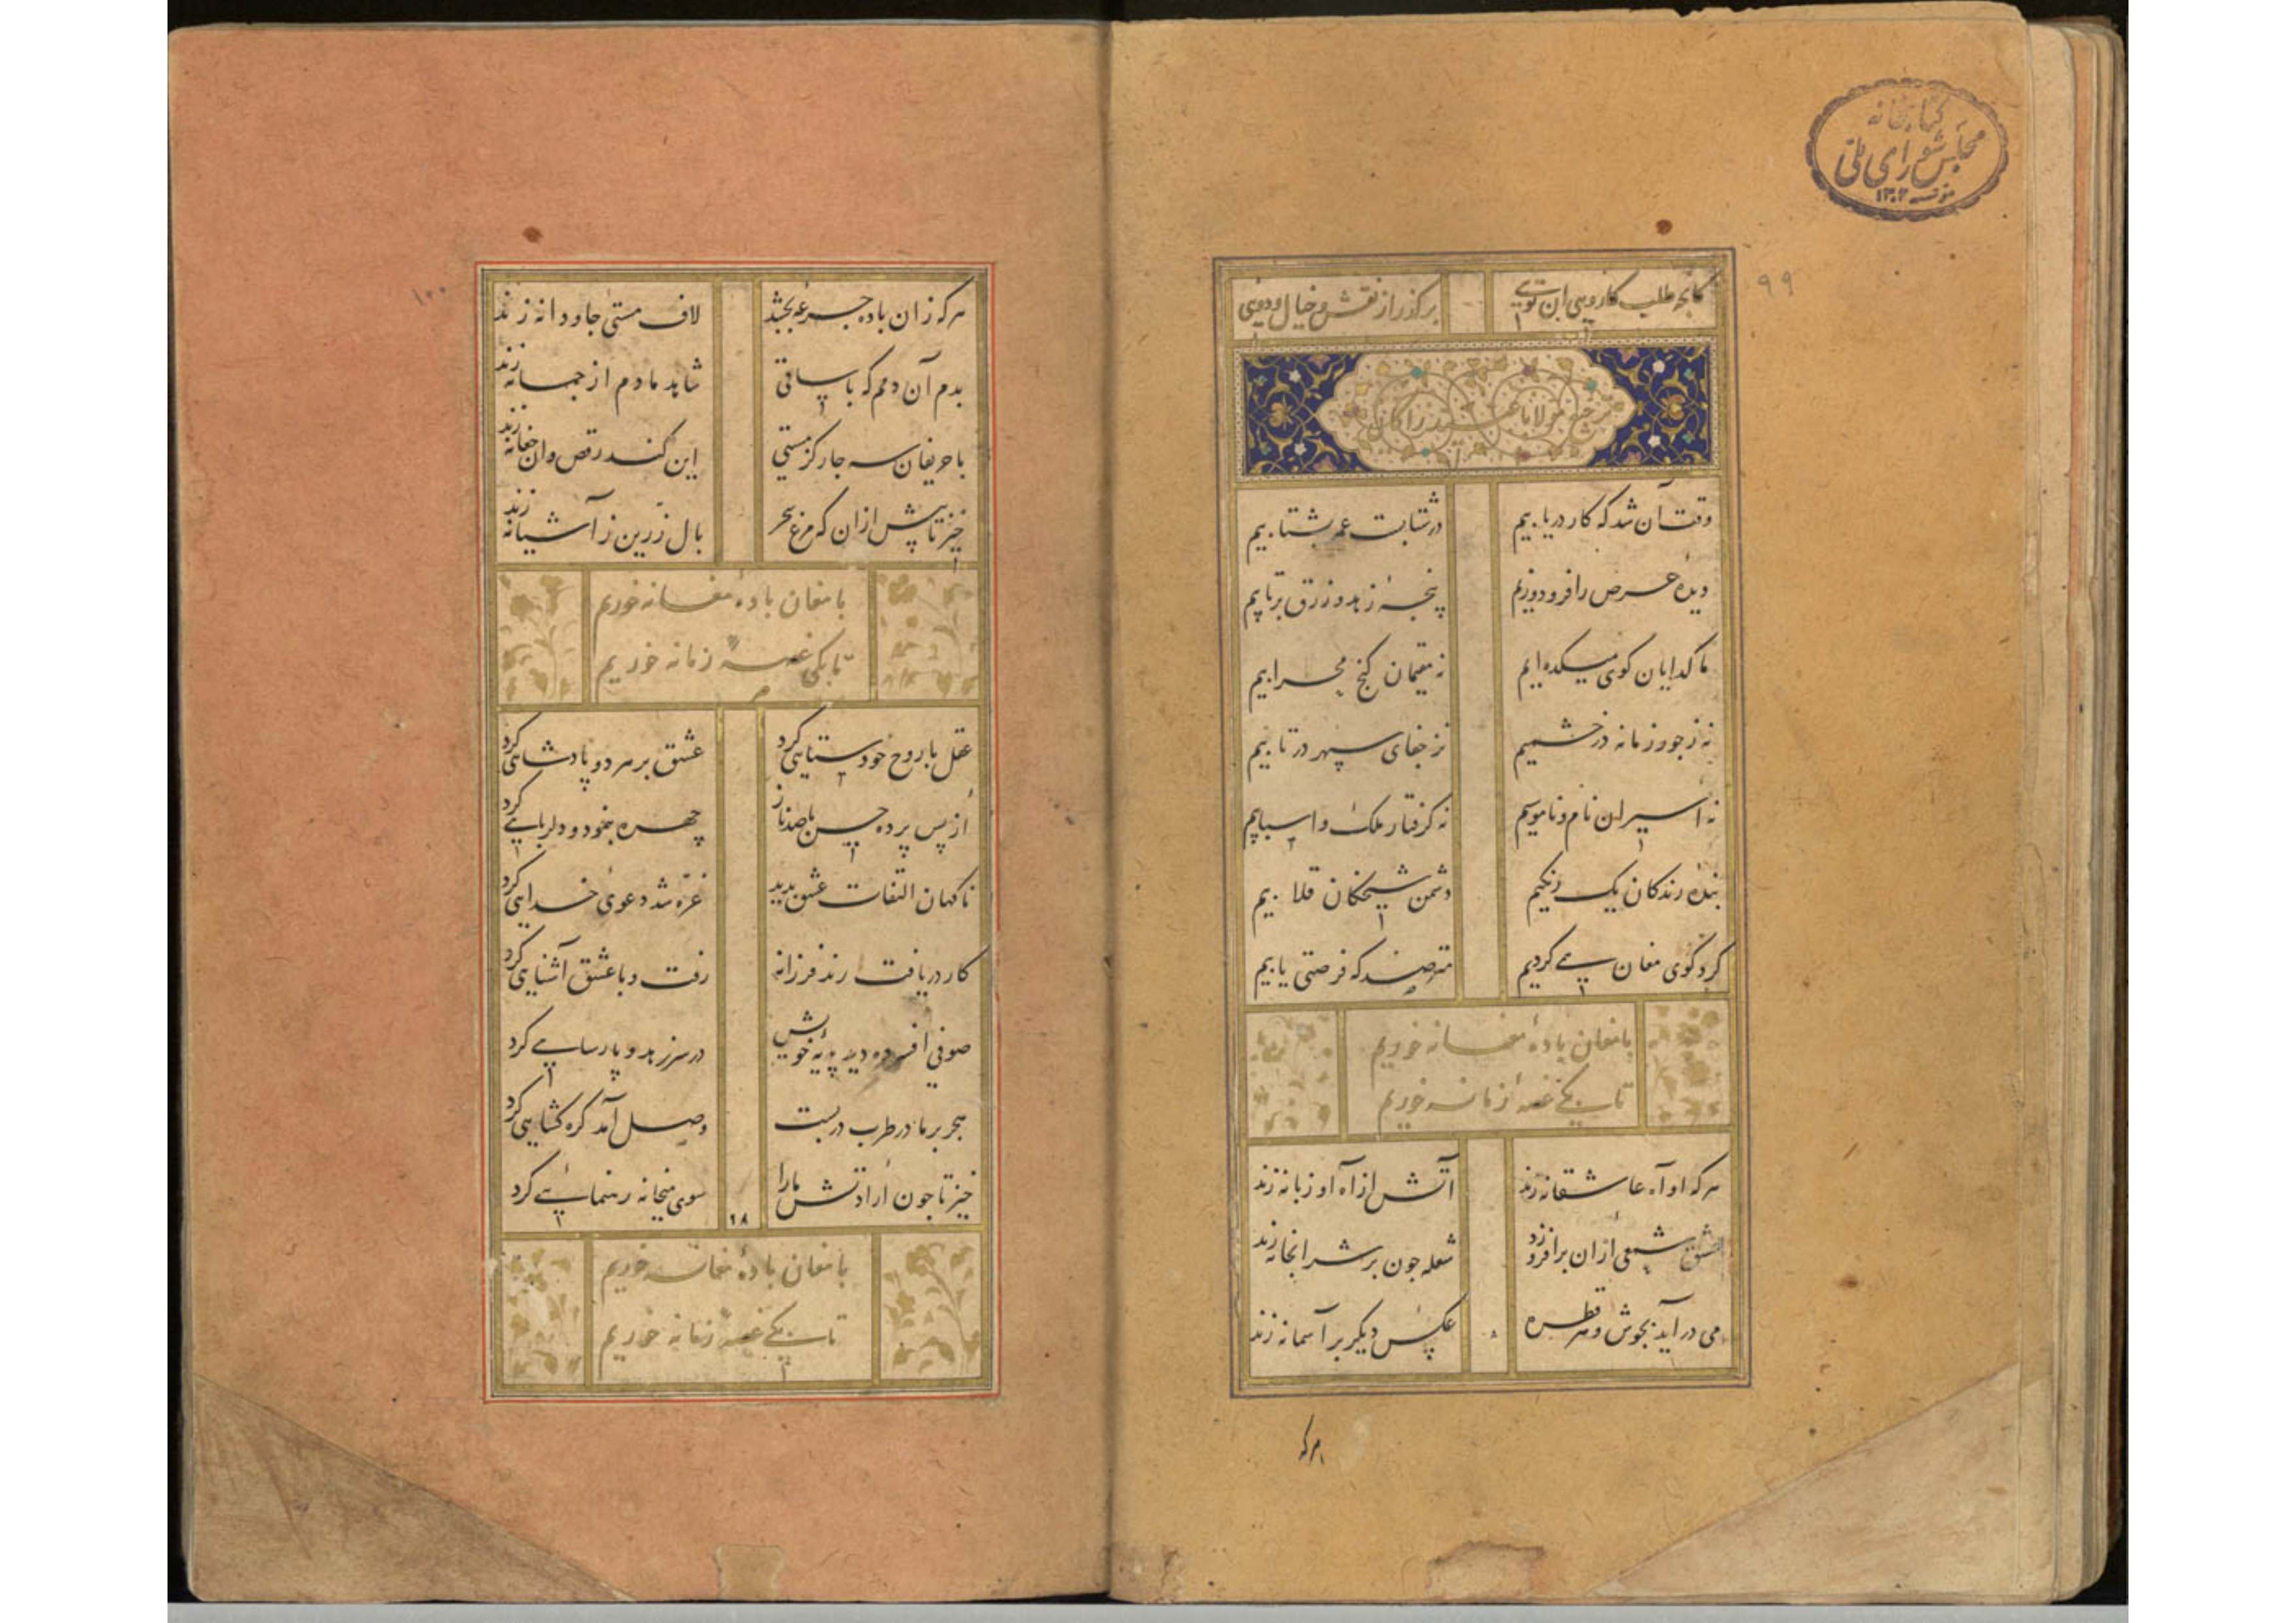 کتابخانه
مجلس شورای ملی
۱۳۰۲
۹۹
کانچه طلب کار ویی ان تویی
برگذر از نقش و خیال و دویی
مولانا
وقت آن شد که کار دریابیم
در شتابست عمر بشتابیم
دیدهٔ حرص را فرو دوزیم
پنجهٔ زهد و زرق برتابیم
ما کدایان کوی میکده ایم
نه مقیمان کنج محرابیم
نه ز جور زمانه در خشمیم
نز جفای سپهر در تابیم
نه اسیران نام و ناموسیم
نه کرفتار ملک و اسبابیم
بنده رندکان یک رنکیم
دشمن شیخکان قلابیم
کرد کوی مغان پی کردیم
مترصد که فرصتی یابیم
با مغان بادهٔ مغانه خوریم
تا بکی غصهٔ زمانه خوریم
هرکه او آه عاشقانه زند
آتش از آه او زبانه زند
عشق شمعی ازان برافروزد
شعله چون بر شرابخانه زند
می درآید بجوش و هر قطره
عکس دیکر بر آسمانه زند
هرکه
۱۰۰
هرکه زان باده جرعهٔ بچشد
لاف مستی جاودانه زند
بدم آن دمم که با ساقی
شاهد ما دم از جمانه زند
با حریفان سه چار کز مستی
این کند رقص و ان چغانه زند
خیز تا پیش ازان که مرغ سحر
بال زرین ز آشیانه زند
با مغان بادهٔ مغانه خوریم
تا بکی غصهٔ زمانه خوریم
عقل با روح خودستایی کرد
عشق بر هر دو پادشاهی کرد
از پس پرده حسن با صد ناز
چهره بنمود و دلربایی کرد
ناکهان التفات عشق بدید
غره شد دعوی خدایی کرد
کار دریافت رند فرزانه
رفت و با عشق آشنایی کرد
صوفی افسرده دید پویهٔ خویش
در سر زهد و پارسایی کرد
هجر بر ما در طرب دربست
وصل آمد کره کشایی کرد
خیز تا چون ارادتش ما را
سوی میخانه رهنمایی کرد
۲۸
با مغان بادهٔ مغانه خوریم
تا بکی غصهٔ زمانه خوریم